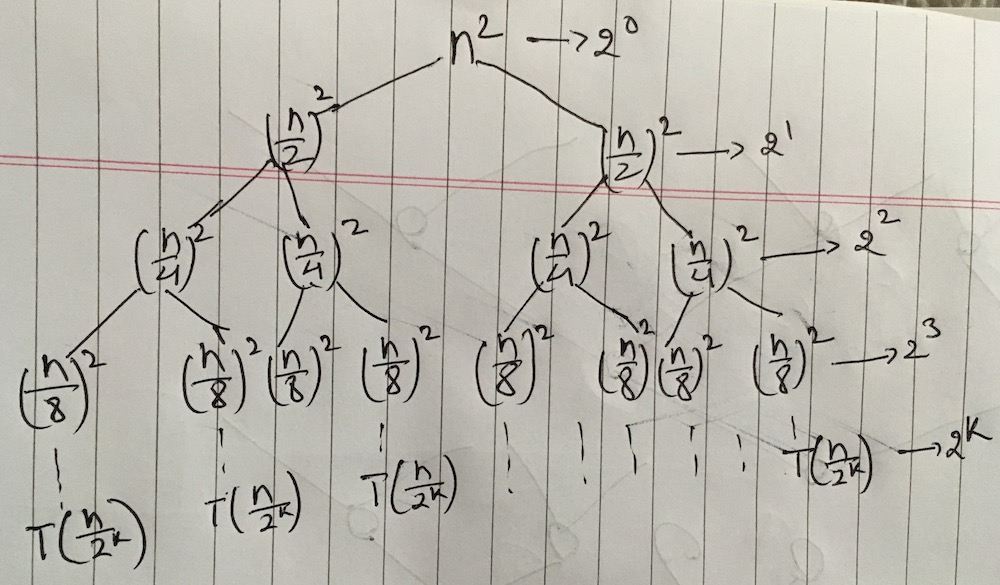 n² → 2⁰
(n/2)² (n/2)² → 2¹
(n/4)² (n/4)² (n/4)² (n/4)² → 2²
(n/8)² (n/8)² (n/8)² (n/8)² (n/8)² (n/8)² (n/8)² (n/8)² → 2³
T(n/2ᵏ) T(n/2ᵏ) T(n/2ᵏ) T(n/2ᵏ) → 2ᵏ